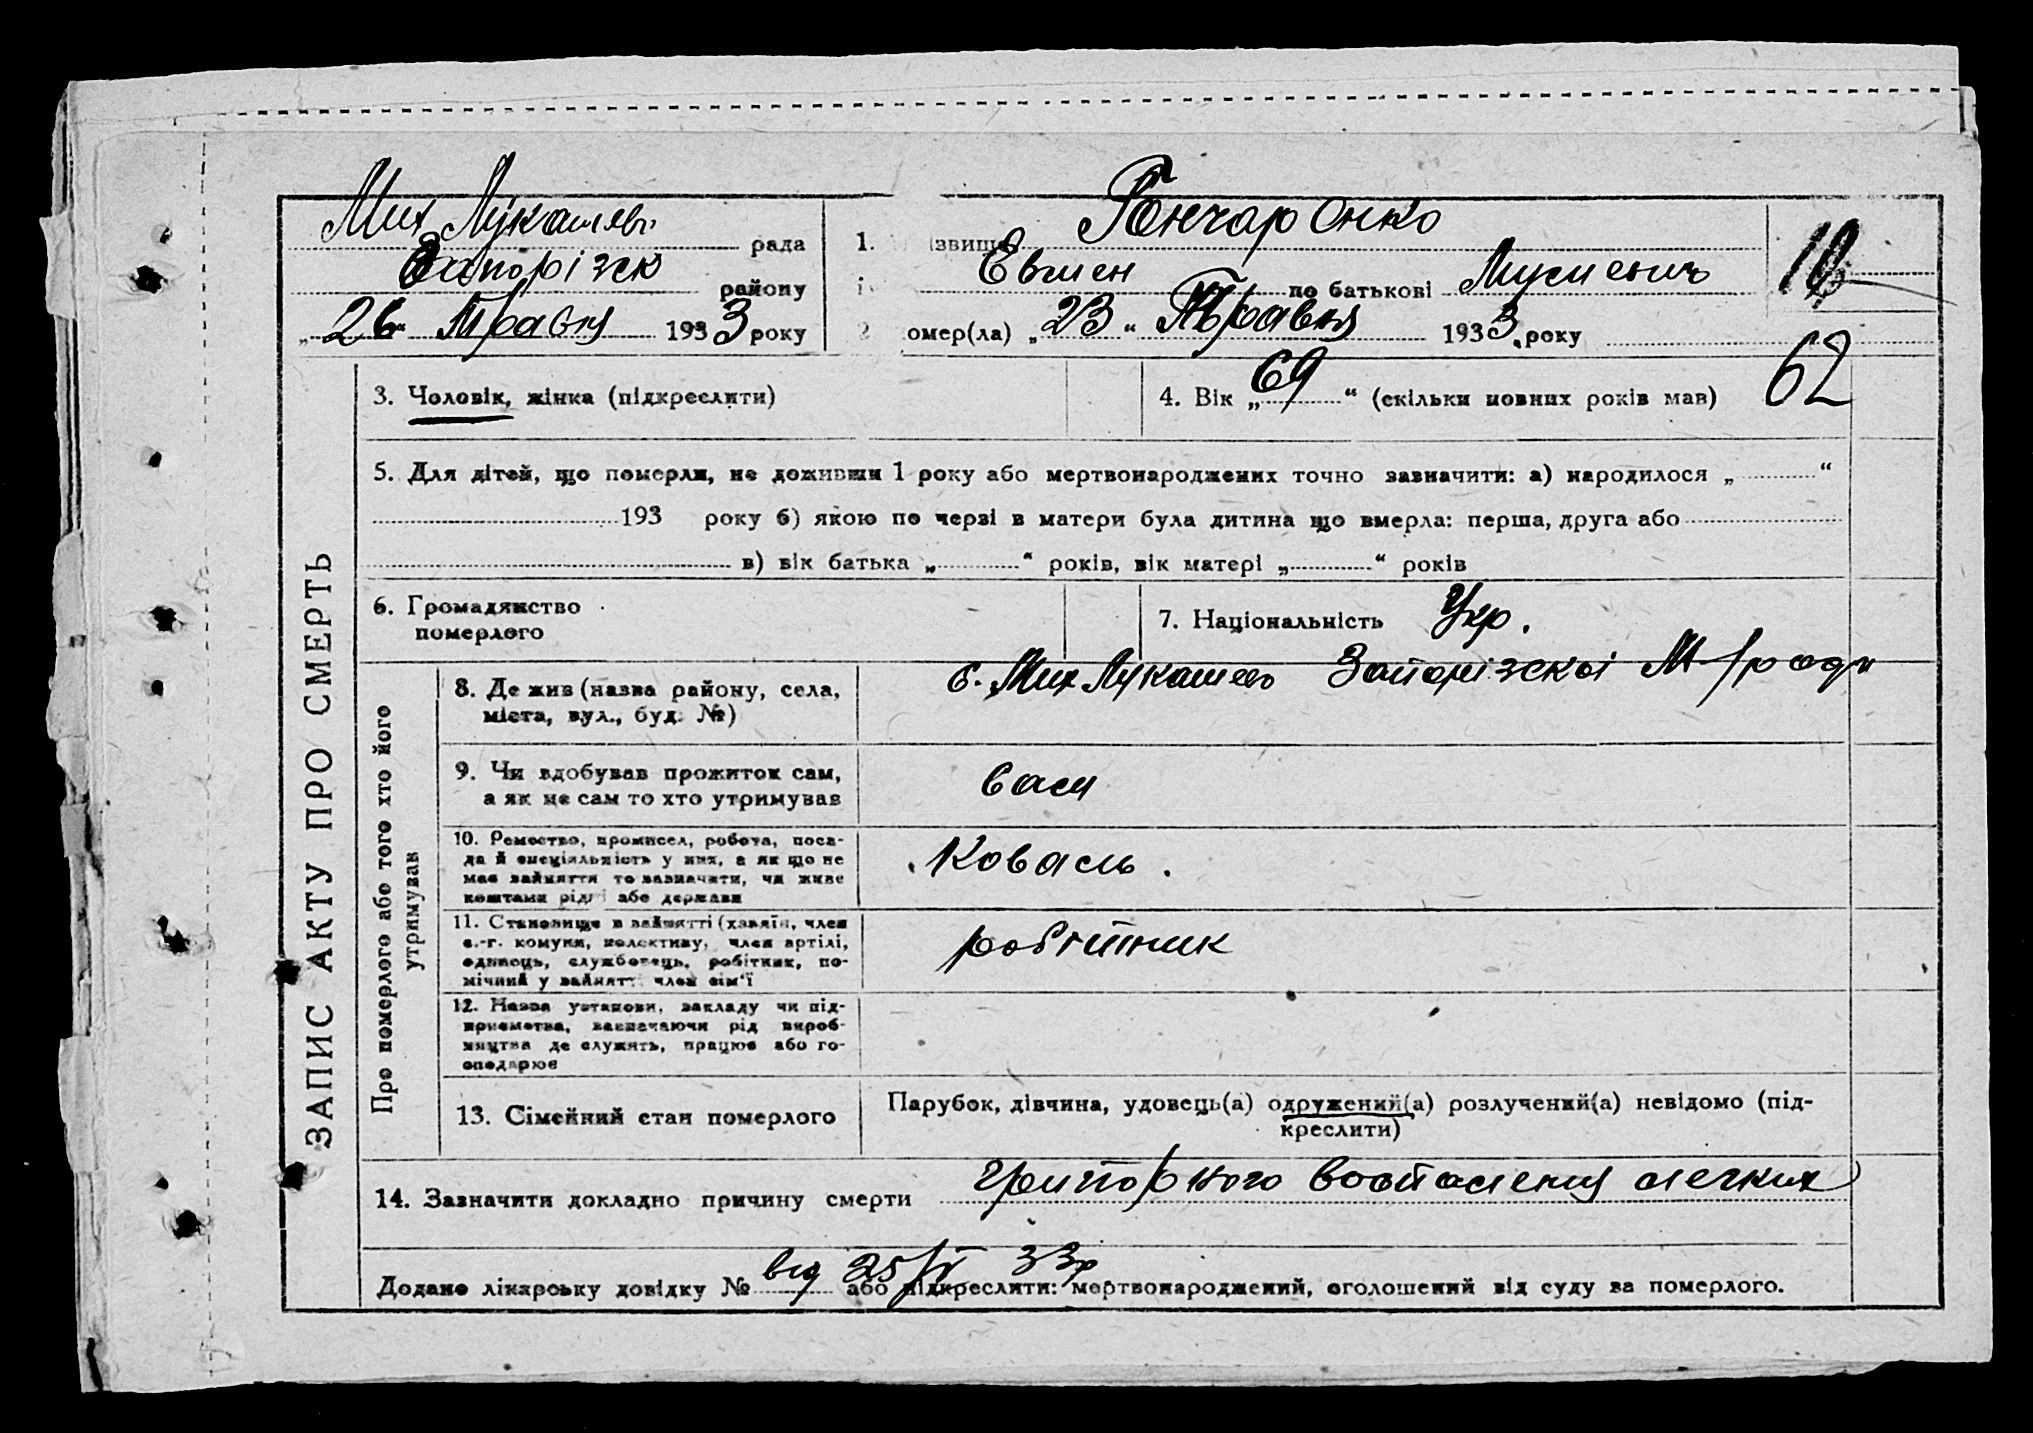 Мих Лукашев. рада
Запорізск району
„26“ Травня 1933 року
1. ізвище Гончаренко
Евмен по батькові Мусиевич
2 омер(ла) „23“ Травня 1933 року
18
62
3. Чоловік, жінка (підкреслити)
4. Вік „69“ (скільки повних років мав)
5. Для дітей, що померли, не доживши 1 року або мертвонароджених точно зазначити: а) народилося „ “
193 року б) якою по черзі в матери була дитина що вмерла: перша, друга або
в) вік батька „ “ років, вік матері „ “ років
6. Громадянство
померлого
7. Національність Укр.
ЗАПИС АКТУ ПРО СМЕРТЬ
Про померлого або того хто його
утримував
8. Де жив (назва району, села,
міста, вул., буд. №)
с. Мих Лукашево Запорізскоі М-ради
9. Чи здобував прожиток сам,
а як не сам то хто утримував
сам
10. Ремество, промисел, робота, поса-
да й специіяльність у них, а як що не
має зайняття то зазначити, чи живе
коштами рідні або держави
Коваль.
11. Становище в зайнятті (хазяїн, член
с.-г. комуни, колективу, член артілі,
одинець, службовець, робітник, по-
мічний у зайнятті член сім'ї
робітник
12. Назва установи, закладу чи під-
приємства, зазначаючи рід вироб-
ництва де служить, працює або го-
сподарює
13. Сімейний стан померлого
Парубок, дівчина, удовець(а) одружений(а) розлучений(а) невідомо (під-
креслити)
14. Зазначити докладно причину смерти грипозного воспаления легких
Додано лікарську довідку № від 25/V 33р або підкреслити: мертвонароджений, оголошений від суду за померлого.